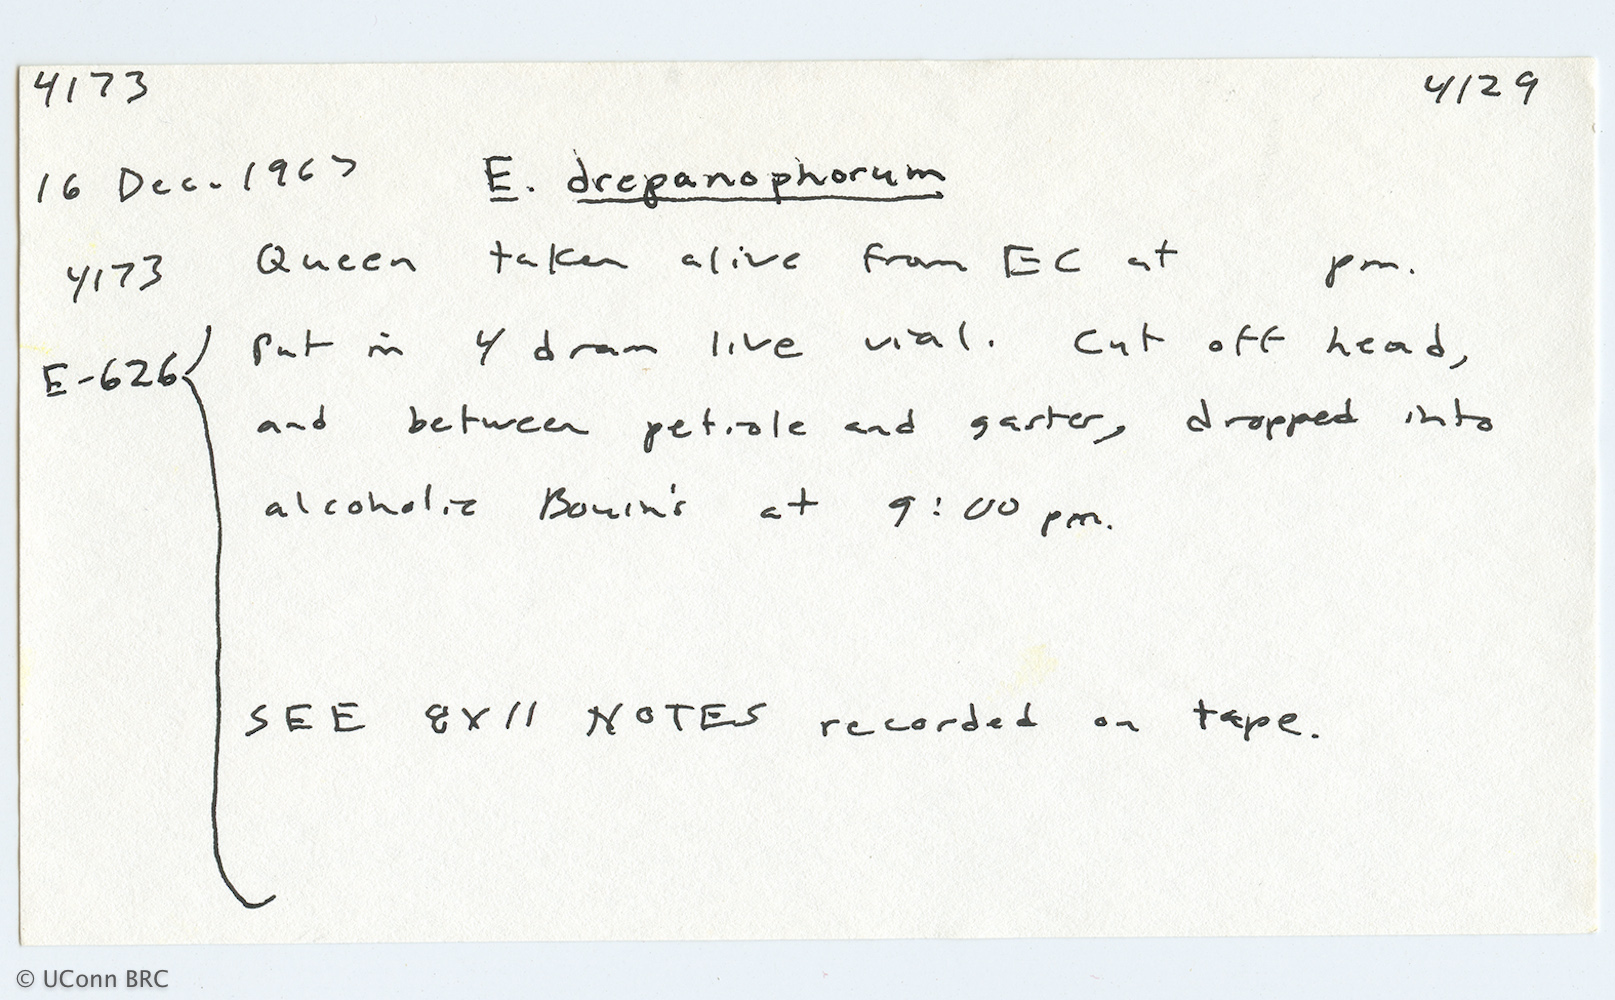 4173 4129
16 Dec. 1967 E. drepanophorum
4173 Queen taken alive from EC at pm.
E-626 Put in 4 dram live vial. Cut off head,
and between petiole and gaster, dropped into
alcoholic Bouin's at 9:00 pm.
SEE 8X11 NOTES recorded on tape.
© UConn BRC